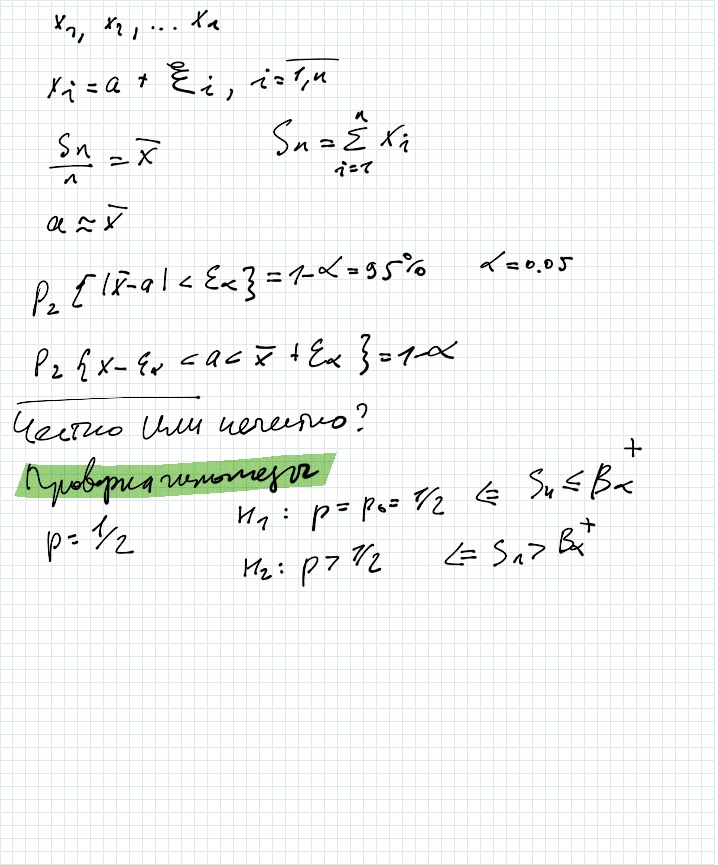 x₁, x₂, ... xₙ
xᵢ = a + ξᵢ, i = 1,n̅
Sₙ/n = x̅    Sₙ = Σᵢ₌₁ⁿ xᵢ
a ≈ x̅
P₂ { |x̅ - a| < ε_α } = 1-α = 95%    α = 0.05
P₂ { x - ε_α < a < x̅ + ε_α } = 1-α
Честно или нечестно?
Проверка гипотезы
H₁: p = p₀ = 1/2 ⇐ Sₙ ≤ B_α⁺
p = 1/2
H₂: p > 1/2 ⇐ Sₙ > B_α⁺